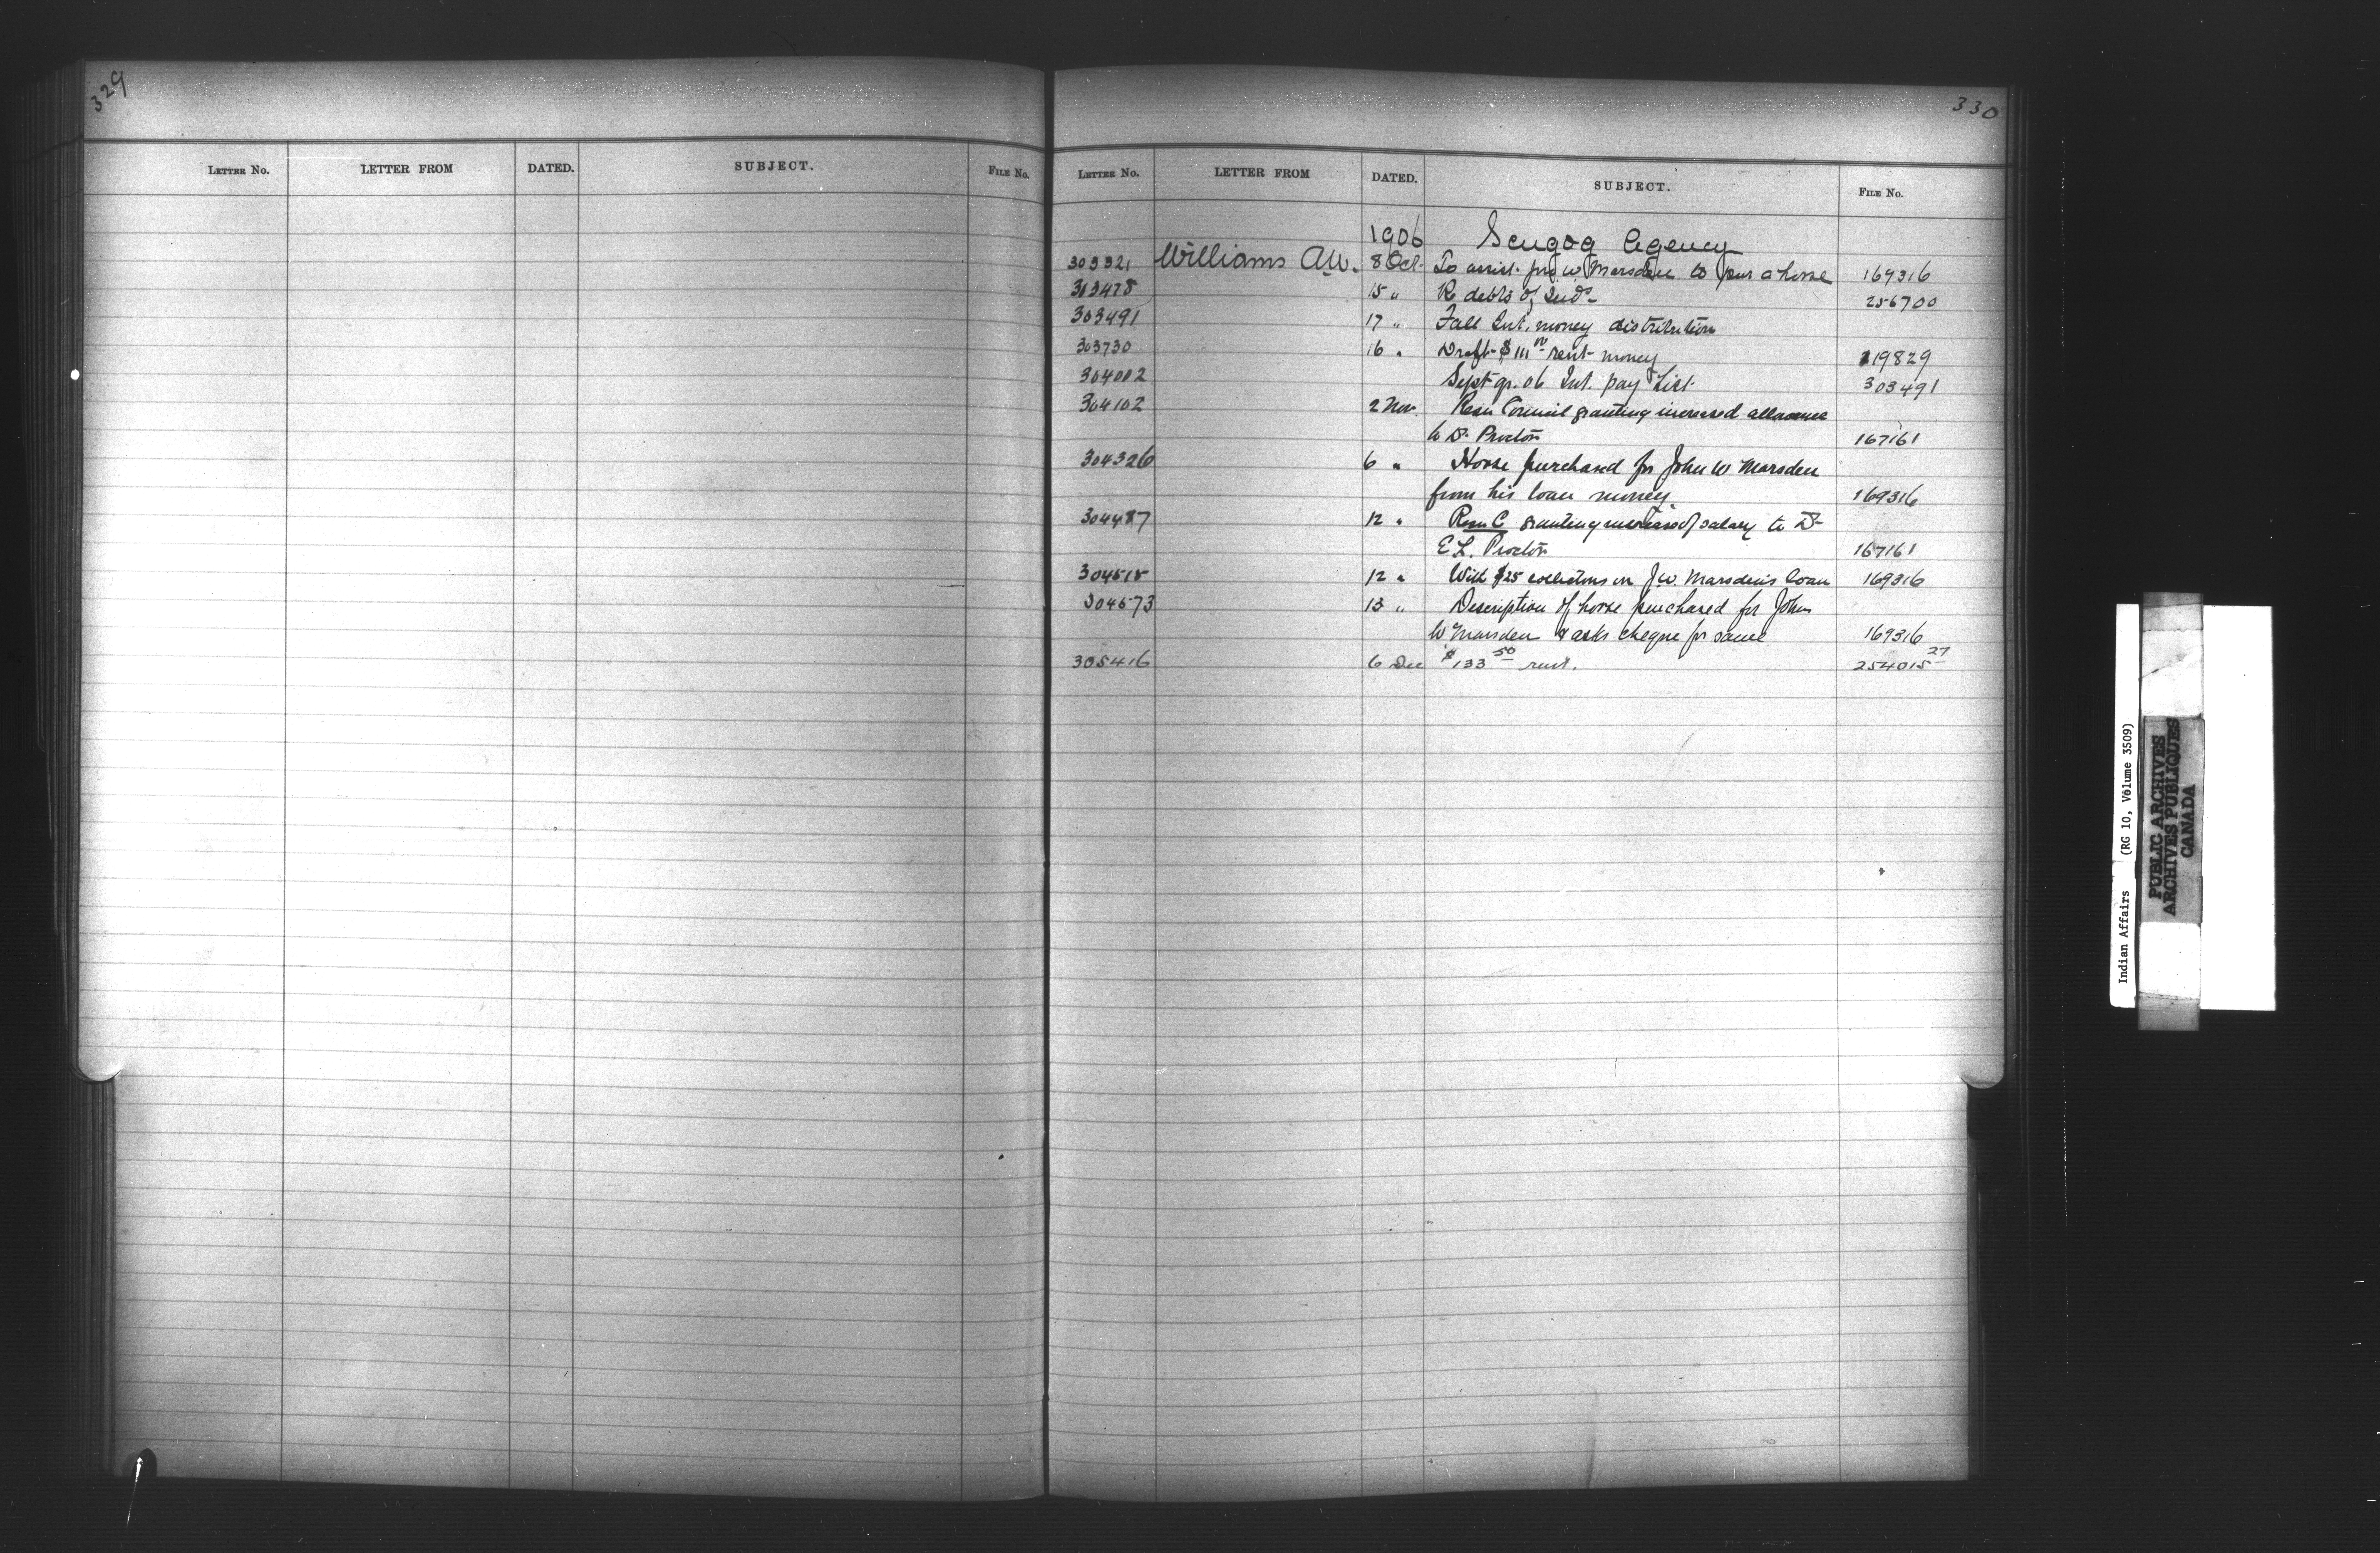 329
LETTER NO. LETTER FROM DATED. SUBJECT. FILE NO.
330
LETTER NO. LETTER FROM DATED. SUBJECT. FILE NO.
1906 Scugog Agency
303321 Williams A.W. 8 Oct. To assist Jno W Marsden to pur a horse 169316
303478 15 " Re debts of Inds. 256700
303491 17 " Fall Int. money distribution
303730 16 " Draft $111 rent money 119829
304002 Sept qr. 06 Int. pay List 303491
304102 2 Nov. Resn Council granting increased allowance
to Dr. Proctor 167161
304326 6 " Horse purchased for John W Marsden
from his loan money 169316
304487 12 " Resn C granting increase of salary to Dr
E L. Proctor 167161
304515 12 " With $25 collections on J.W. Marsden's loan 169316
304573 13 " Description of horse purchased for John
W Marsden & asks cheque for same 169316
305416 6 Dec $133 50 rent. 254015 27
Indian Affairs (RG 10, Volume 3509)
PUBLIC ARCHIVES
ARCHIVES PUBLIQUES
CANADA